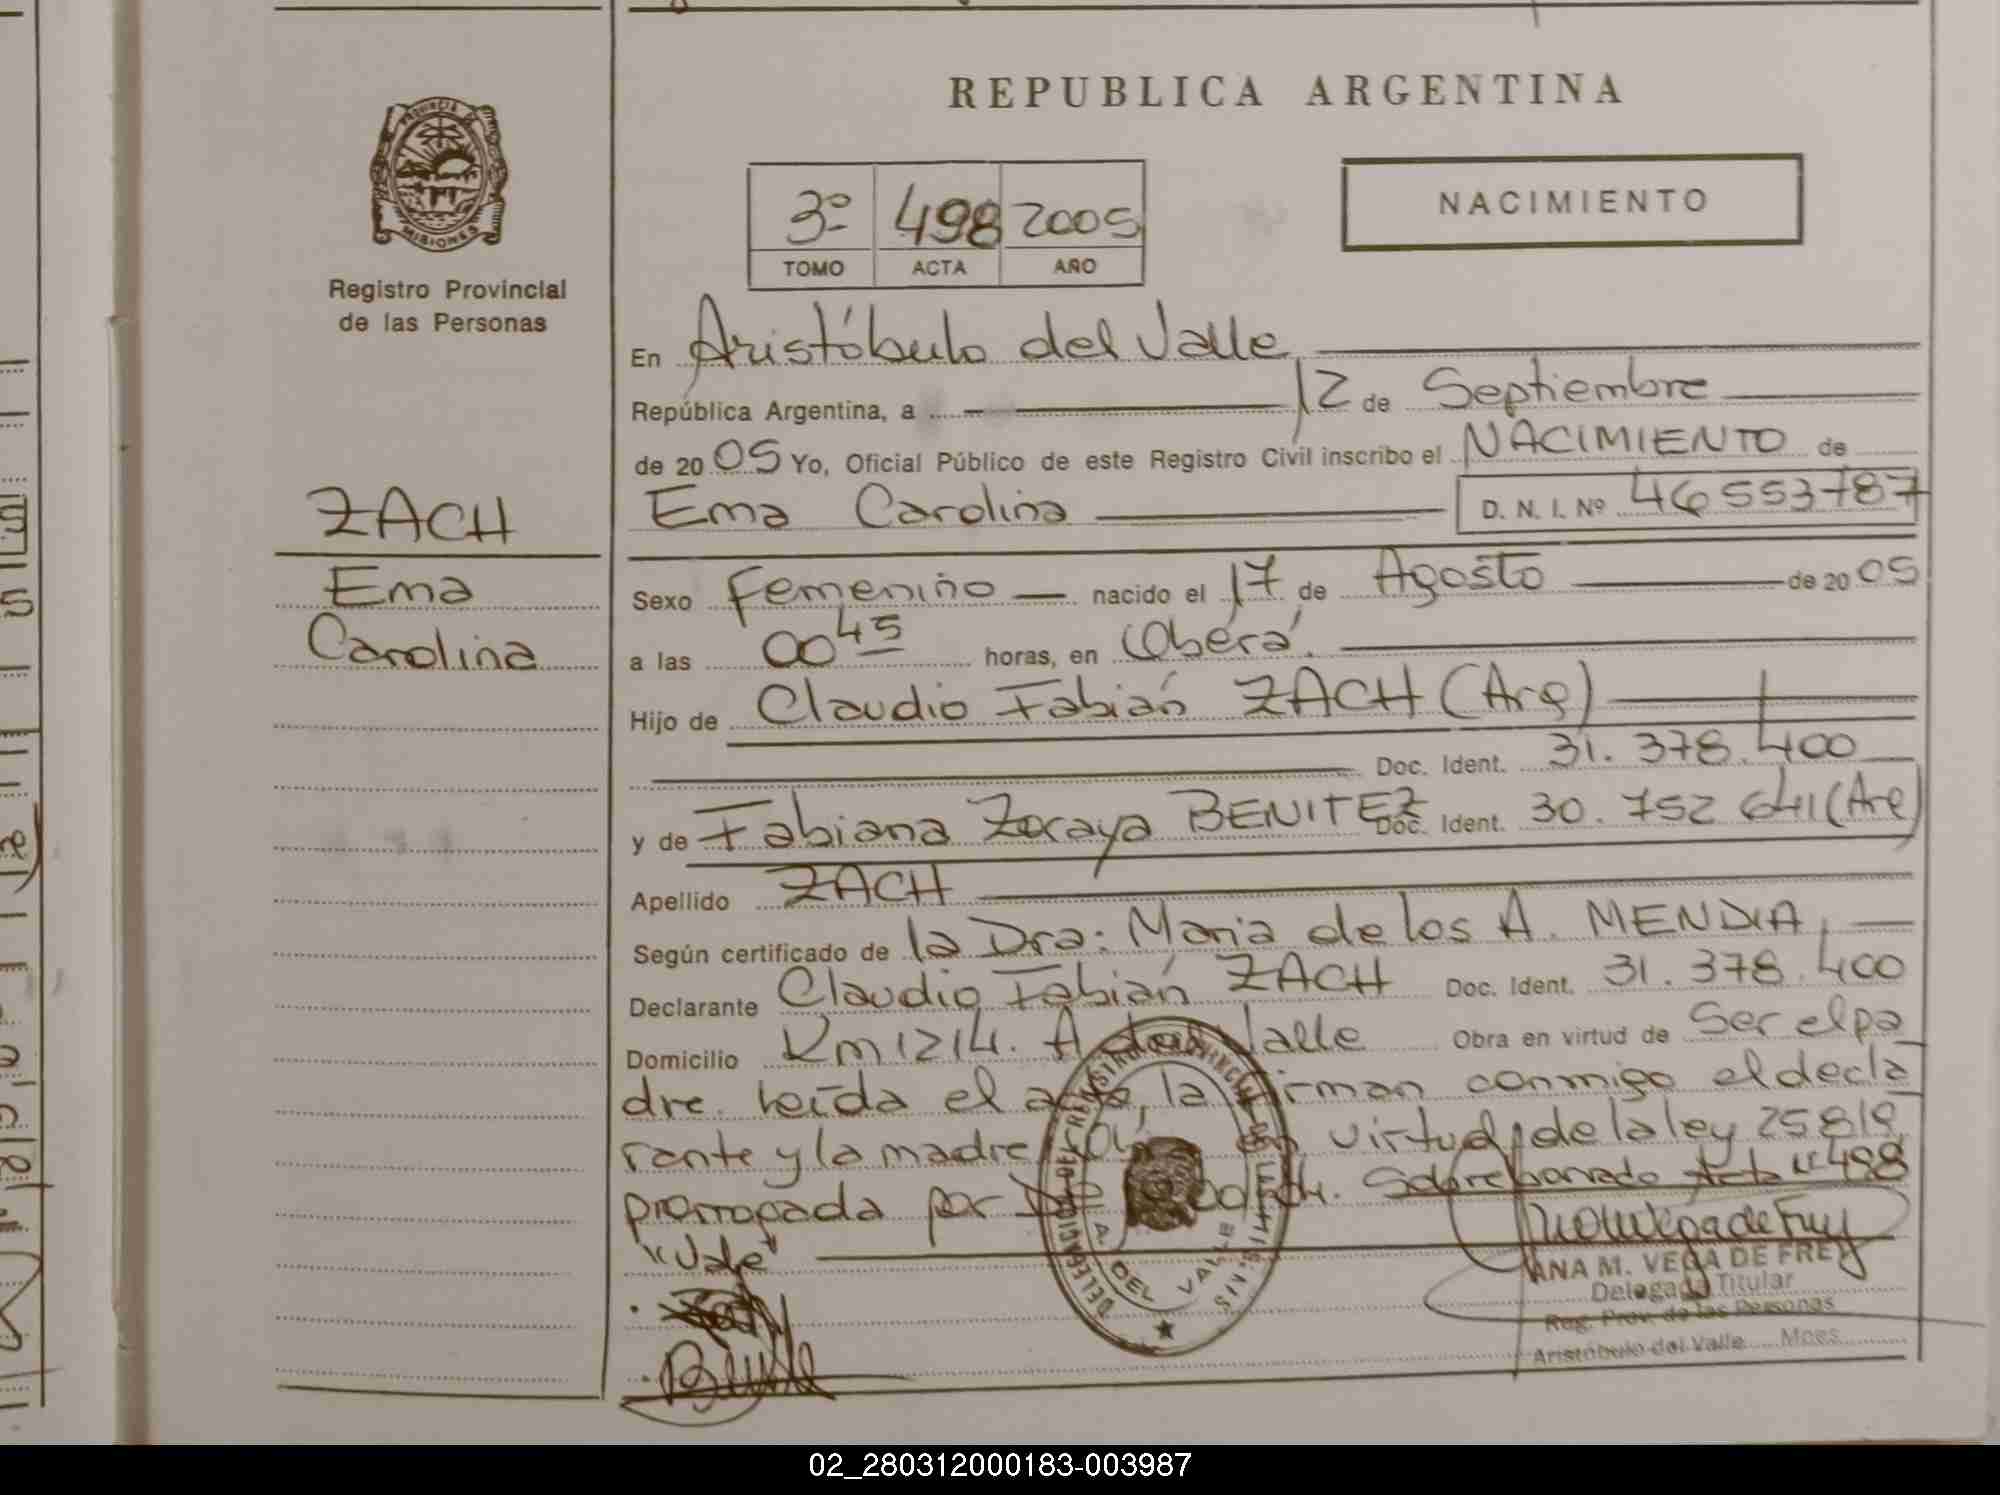 REPUBLICA ARGENTINA
PROVINCIA DE
MISIONES
Registro Provincial
de las Personas
3º 498 2005
TOMO ACTA AÑO
NACIMIENTO
En Aristóbulo del Valle
República Argentina, a 12 de Septiembre
de 20 05 Yo, Oficial Público de este Registro Civil inscribo el NACIMIENTO de
ZACH
Ema Carolina D. N. I. Nº 46553787
Ema
Carolina
Sexo Femenino nacido el 17 de Agosto de 20 05
a las 00 45 horas, en Oberá.
Hijo de Claudio Fabián ZACH (Arg)
Doc. Ident. 31.378.400
y de Fabiana Zoraya BENITEZ Doc. Ident. 30.752 641 (Arg)
Apellido ZACH
Según certificado de la Dra: Maria de los A. MENDIA,
Declarante Claudio Fabián ZACH Doc. Ident. 31.378.400
Domicilio Km 1214. A del Valle Obra en virtud de Ser el pa
dre. Leída el acta, la firman conmigo el decla
rante y la madre. en virtud de la ley 25819
prorrogada por Sobreborrado Acta "498
"Vale"
DEL VALLE
ANA M. VEGA DE FREY
Delegada Titular
Reg. Prov. de las Personas
Aristóbulo del Valle Mnes
02_280312000183-003987